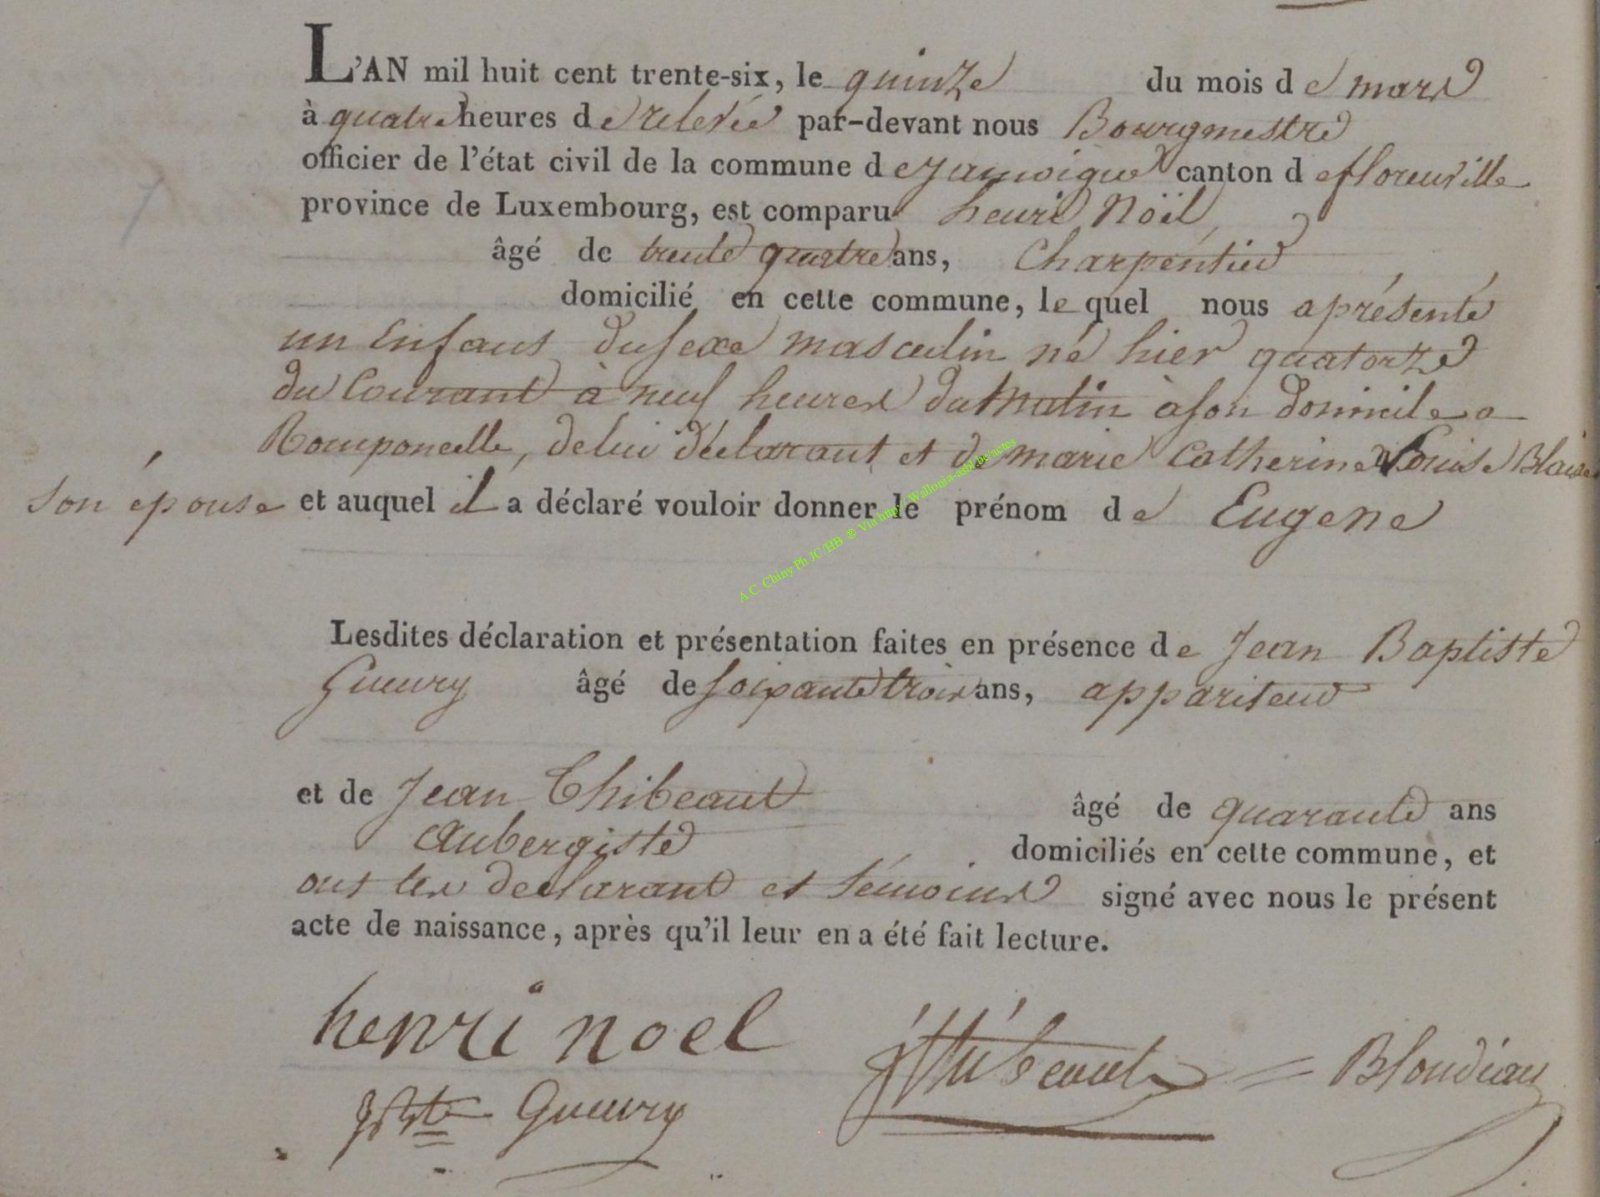 L'AN mil huit cent trente-six, le quinze du mois de mars
à quatre heures de relevée par-devant nous Bourgmestre
officier de l'état civil de la commune de Jamoigne canton de florenville
province de Luxembourg, est comparu henri Noël,
âgé de trente quatre ans, Charpentier
domicilié en cette commune, le quel nous a présenté
un Enfant du sexe masculin né hier quatorze
du Courant à neuf heures du Matin à son domicile a
Romponcelle, de lui déclarant et de marie Catherine Louise Blaise
son épouse et auquel il a déclaré vouloir donner le prénom de Eugene
A.C. Chiny Ph JC/HB @ Via
Lesdites déclaration et présentation faites en présence de Jean Baptiste
Gueury âgé de soixante trois ans, appariteur
et de Jean Thibeaut âgé de quarante ans
Aubergiste domiciliés en cette commune, et
ont les declarant et témoins signé avec nous le présent
acte de naissance, après qu'il leur en a été fait lecture.
henri noel
JThibeaut = Blondiau
JBte Gueury